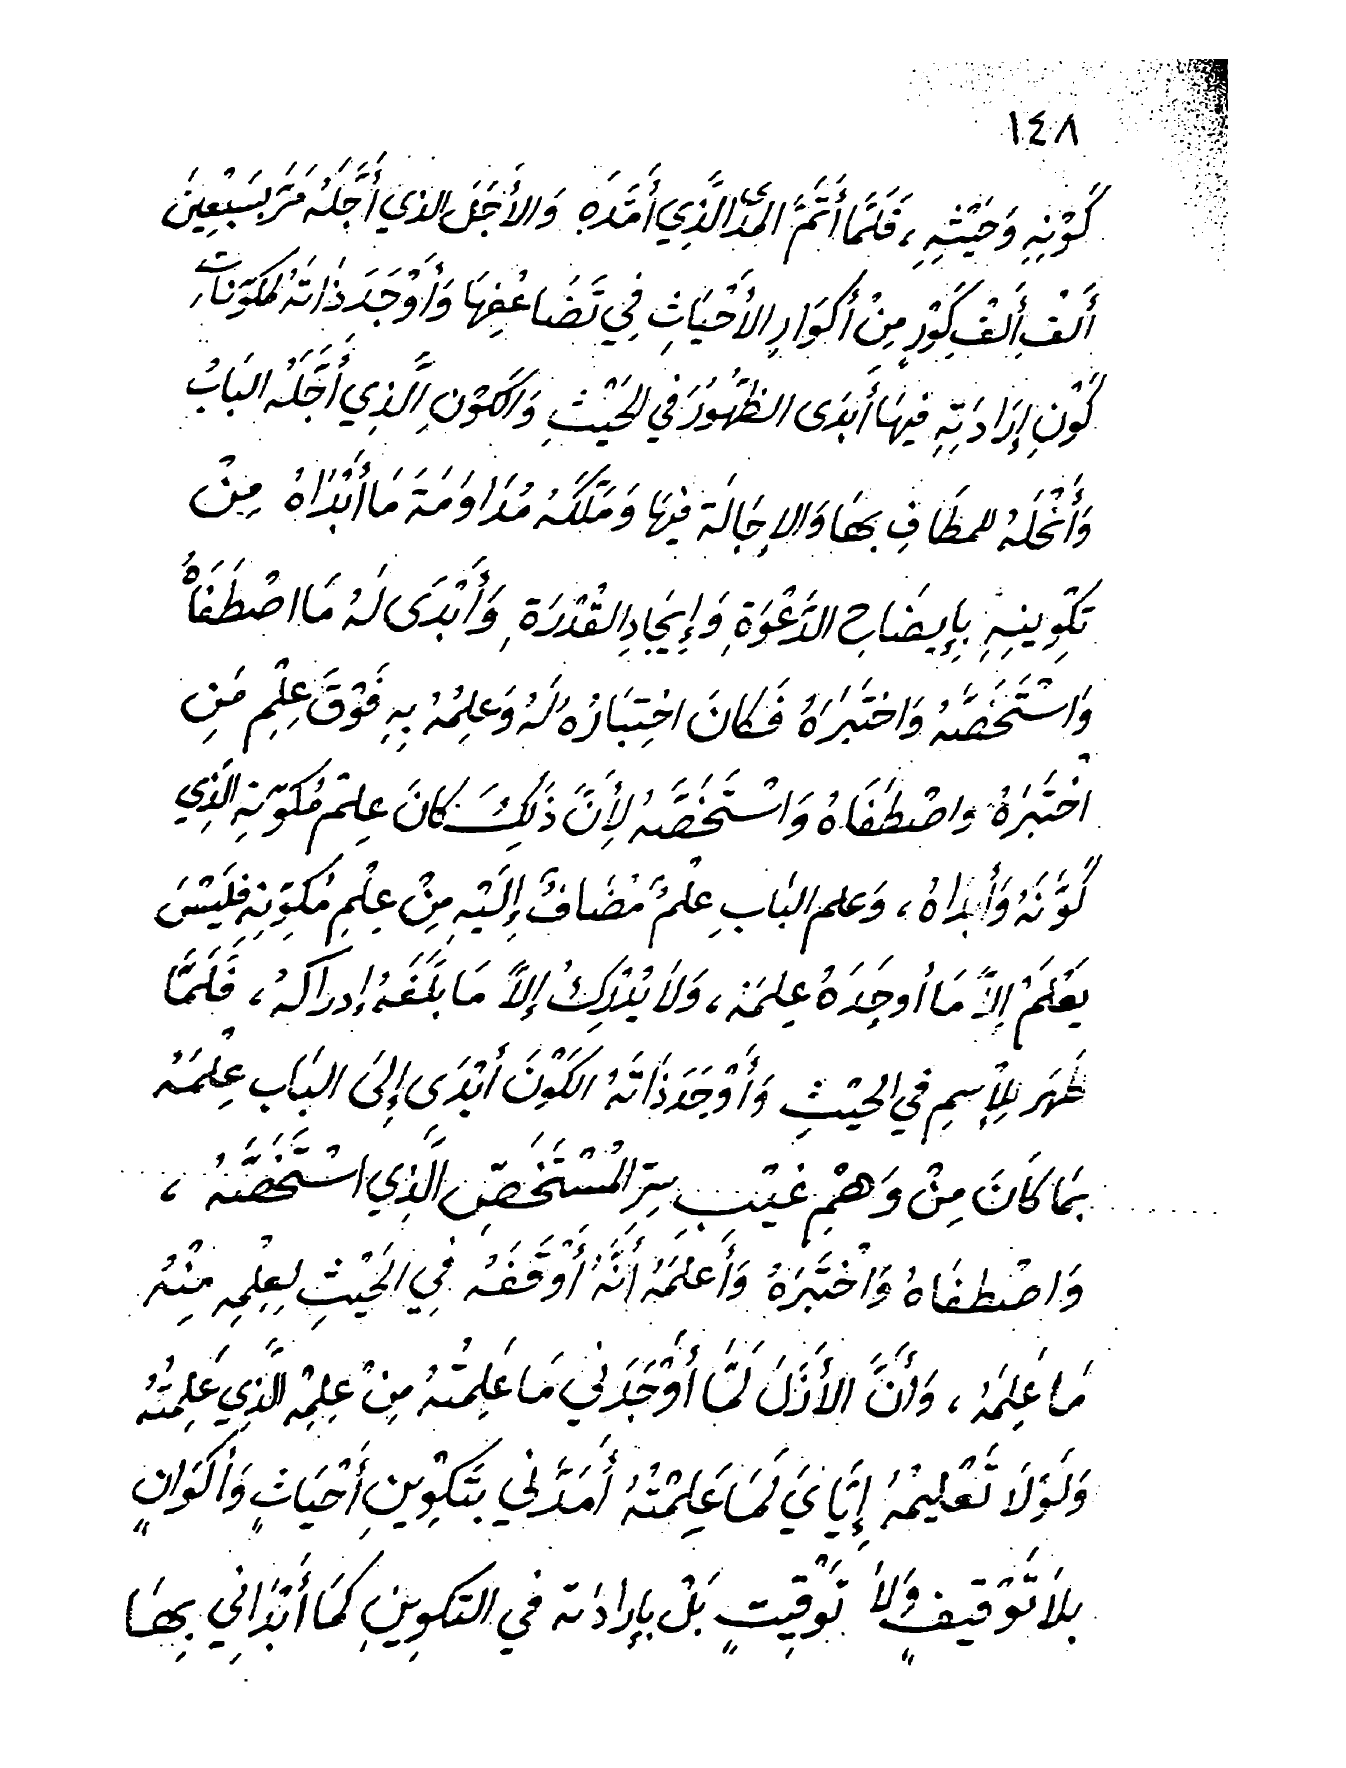 ١٤٨
كَوْنِهِ وَحَيْثِهِ ، فَلَمَّا أَتَمَّ المَدَى الَّذِي أَمَدَّهِ وَالأَجَلَ الذي أَجَّلَهُ مَرَّ بِسَبْعِينَ
أَلْفِ أَلْفِ كَوْرٍ مِنْ أَكوَارِ الأَحْيَاثِ فِي تَضَاعُفِهَا وَأَوْجَدَ ذَاتَهُ لمكوّنات
كَوْنِ إِرَادَتِهِ فِيهَا أَبْدَى الظُّهُورَ فِي الحَيْثِ وَالكَوْنِ الَّذِي أَجَّلَهُ البَابُ
وَأَنْحَلَهُ للمطَافِ بِهَا وَالإِجَالَة فِيْهَا وَمَلَّكَهُ مُدَاوَمَةَ مَا أَبْدَاهُ مِنْ
تَكْوِينِهِ بِإِيضَاحِ الدَّعْوَةِ وَإِيجَادِ القُدْرَةِ وَأَبْدَى لَهُ مَا اصْطَفَاهُ
وَاسْتَخَصَّهُ وَاخْتَبَرَاهُ فَكَانَ اخْتِبَارُهُ لَهُ وَعِلمُهُ بِهِ فَوْقَ عِلْمِ مَنِ
اخْتَبَرَهُ وَاصْطَفَاهُ وَاسْتَخَصَّهُ لِأَنَّ ذَلِكَ كَانَ عِلْمَ مُكَوّنِهِ الَّذِي
كَوَّنَهُ وَأَبدَاهُ ، وَعلم البَابِ عِلْمٌ مُضَافٌ إِلَيْهِ مِنْ عِلْمِ مُكَوِّنِهِ فَلَيْسَ
يَعْلَمْ إِلاَّ مَا أوجَدَهُ عِلمَهُ ، وَلاَ يُدْرِكُ إِلاَّ مَا بَلَّغَهُ إدراكَهُ ، فَلَمَّا
ظَهَر لِلإِسمِ فِي الحَيْثِ وَأَوْجَدَ ذَاتَهُ الكَوْنَ أَبْدَى إِلَى البَابِ عِلْمَهُ
بِمَا كَانَ مِنْ وَهْمِ غَيْبِ سِرِّ المُسْتَخَصِّ الَّذِي اسْتَخَصَّهُ ،
وَاصْطِفَاهُ وَاخْتَبَرَهُ وَأَعلَمَهُ أَنَّهُ أَوْقَفَهُ فِي الحَيْثِ لِعِلْمِهِ مِنْهُ
مَا عَلِمَهُ ، وَأَنَّ الأَزَلَ لَمَّا أَوْجَدَنِي مَا عَلِمْتُهُ مِنْ عِلمِهِ الَّذِي عَلِمْتُهُ
وَلَوْلَا تَعْلِيمُهُ إِيَّايَ لَمَا عَلِمْتُهُ أَمَدَّنِي بِتَكْوِينِ أَحْيَاثٍ وَأَكَوَانٍ
بِلاَ تَوْقِيفٍ وَلاَ تَوْقِيتٍ بَلْ بِإِرادَته في التكوِينِ كَمَا أَبْدَانِي بِهَا